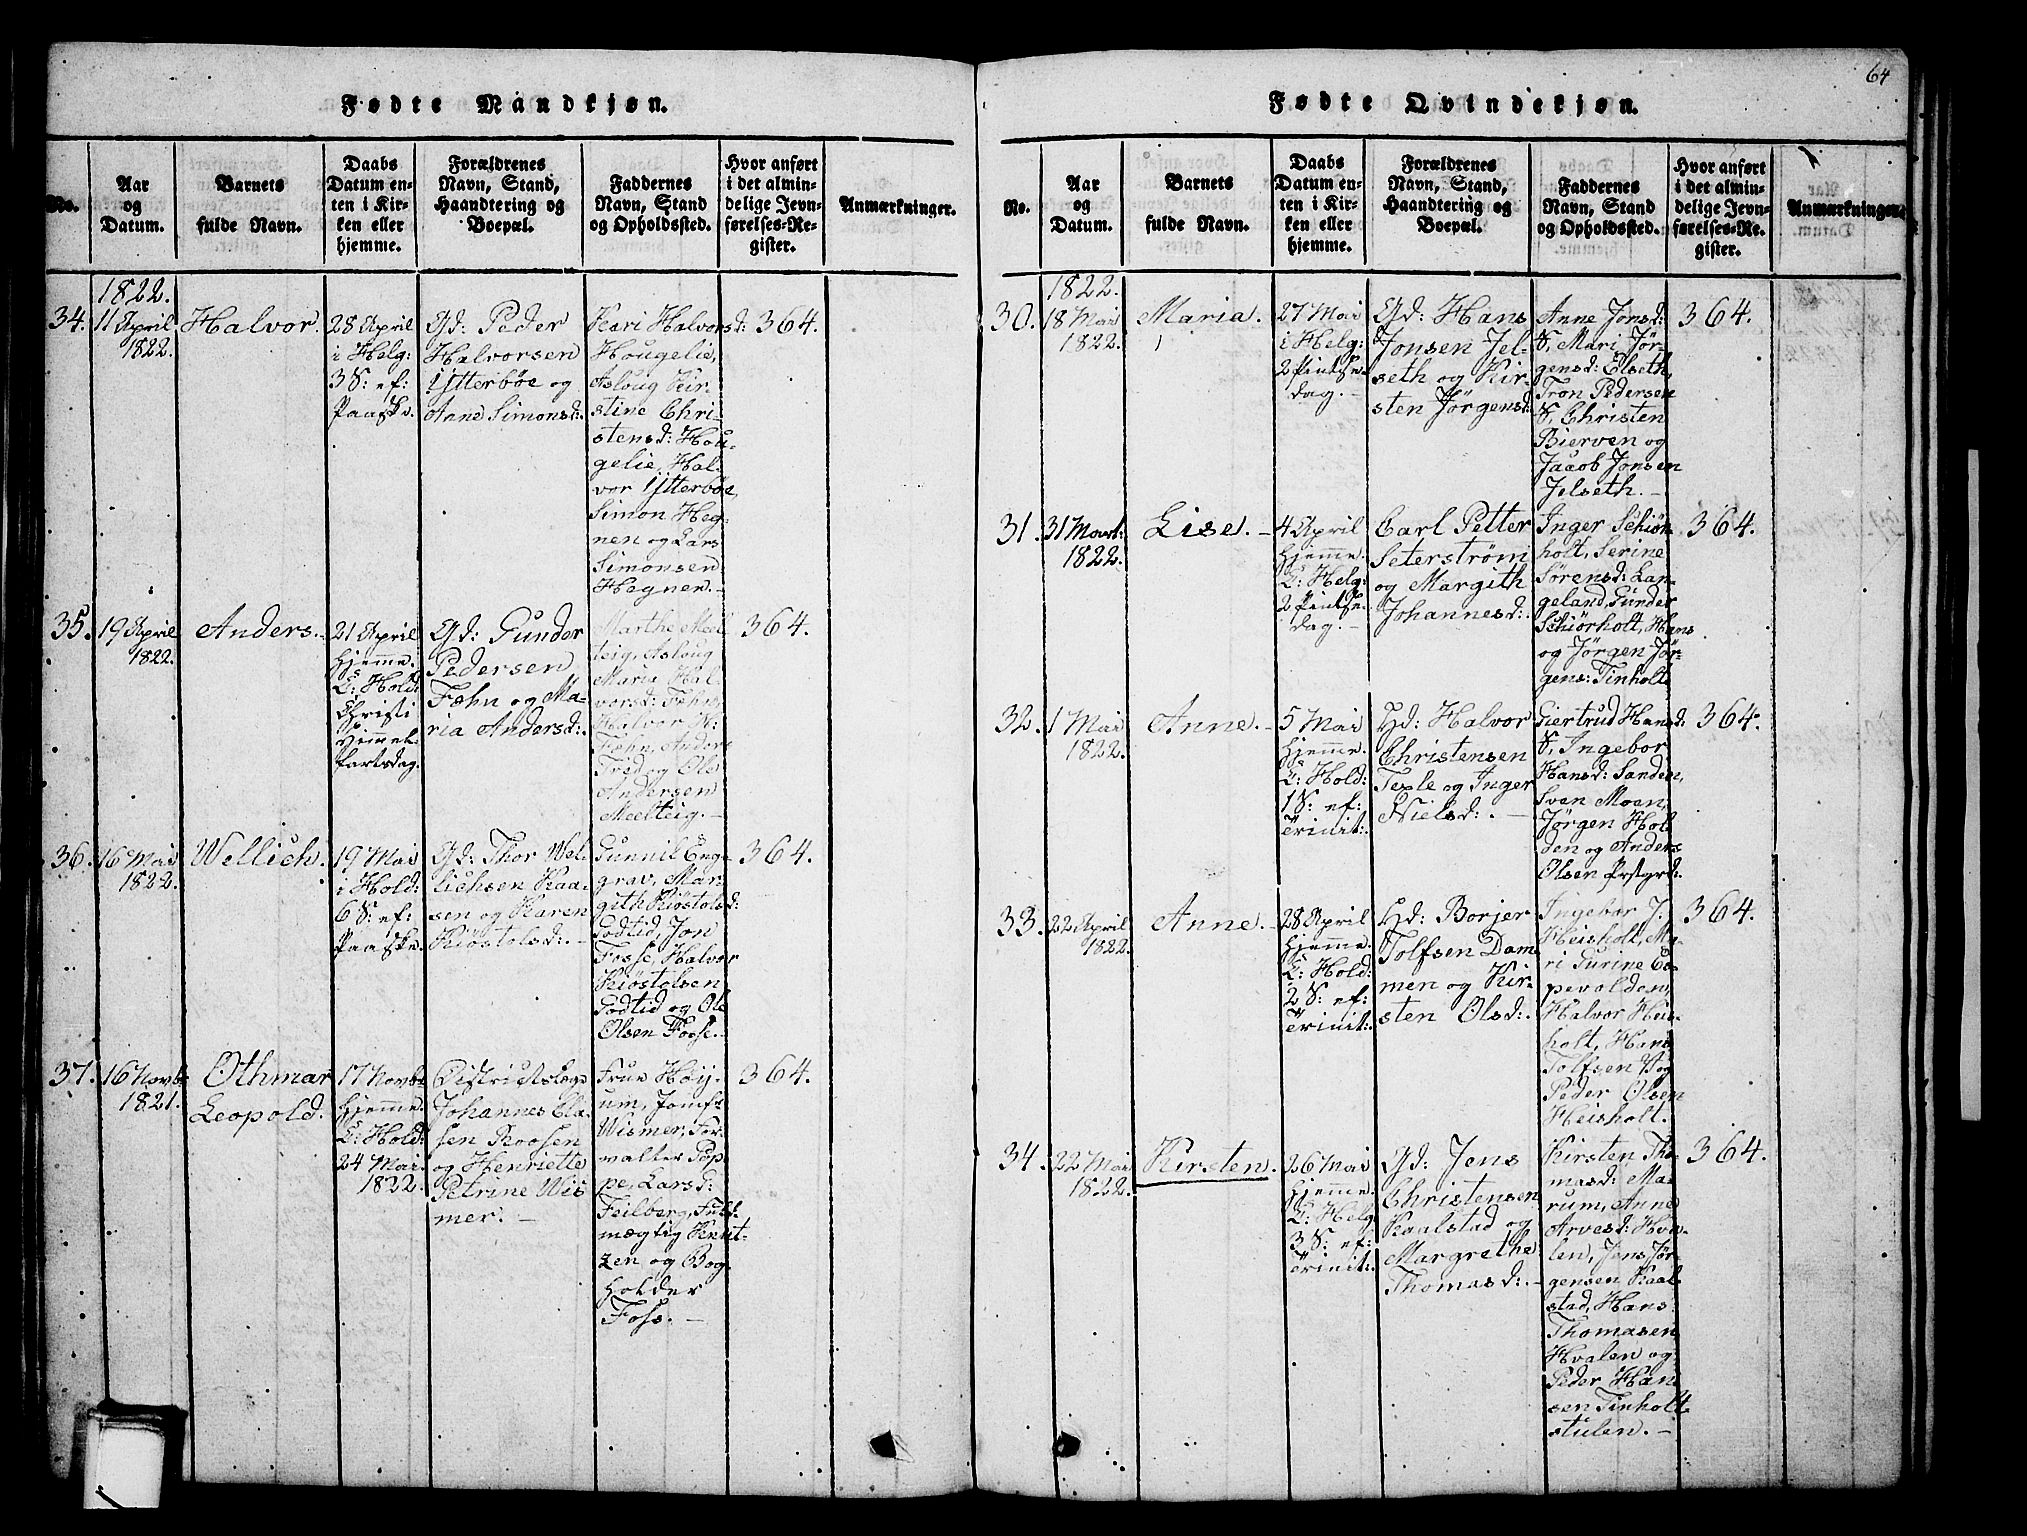 64
Fødte Mandkjøn.
No.
Aar
og
Datum.
Barnets
fulde Navn.
Daabs
Datum en-
ten i Kir-
ken eller
hjemme.
Forældrenes
Navn, Stand,
Haandtering og
Boepæl.
Faddernes
Navn, Stand
og Opholdssted.
Hvor anført
i det almin-
delige Jevn-
førelses-Re-
gister.
Anmærkninger.
1822.
34.
11 April
1822.
Halvor.
28 April
i Helg:
3 S: ef:
Paaske.
Gd: Peder
Halvorsen
Ytterbøe og
Anne Simonsd:.
Kari Halvorsd:
Hougelie,
Asloug Kir-
stine Chri-
stensd: Hou-
gelie, Hal-
vor Ytterbøe,
Simon Heg-
nen og Lars
Simonsen
Hegnen. -
364.
35.
19 April
1822.
Anders. -
21 April
hjemme.
C: Hold:
Christi
Himmel-
fartsdag.
Gd: Gunder
Pedersen
Fæhn og Ma-
ria Andersd:.
Marthe Meel-
teig, Asloug
Maria Hal-
vorsd: Fæhn,
Halvor N:
Fæhn, Anders
Tred og Ole
Andersen
Meelteig. -
364.
36.
16 Mai
1822.
Wellich.
19 Mai
i Hold:
6 S: ef:
Paaske.
Gd: Thor Wel-
lichsen Kaa-
sen og Karen
Kiøstolsd:. -
Gunnil Eng-
grav, Mar-
gith Kiøstolsd:
Godtid, Jon
Fosse, Halvor
Kiøstolsen
Godtid og Ole
Olsen Fosse. -
364.
37.
16 Novbr
1821.
Othmar
Leopold.
17 Novbr
hjemme.
C: Hold:
24 Mai
1822.
Districtslæge
Johannes Cla-
sen Roosen
og Henriette
Petrine Wis-
mer. -
Frue Høij-
um, Jomfr
Wismer, For-
valter Pop-
pe, Larsd:
Feilberg, Fuld-
mægtig Knut-
zen og Bog-
holder
Foss. -
364.
Fødte Qvindekjøn.
No.
Aar
og
Datum.
Barnets
fulde Navn.
Daabs
Datum en-
ten i Kir-
ken eller
hjemme.
Forældrenes
Navn, Stand,
Haandtering og
Boepæl.
Faddernes
Navn, Stand
og Opholdssted.
Hvor anført
i det almin-
delige Jevn-
førelses-Re-
gister.
Anmærkninger.
1822.
30.
18 Mai
1822.
Maria.
27 Mai
i Helg:
2 Pintse-
dag. -
Gd: Hans
Jonsen Jel-
seth og Kir-
sten Jørgensd:
Anne Jonsd:
S, Mari Jør-
gensd: Elseth,
Tron Pedersen
S, Christen
Bierven og
Jacob Jonsen
Jelseth. -
364.
31.
31 Mart:
1822.
Lise. -
4 April
hjemme.
C: Helg:
2 Pintse-
dag. -
Carl Petter
Seterstrøm
og Margith
Johannesd:
Inger Schiør-
holt, Serine
Sørensd: Lan-
geland, Gunder
Schiørholt, Hans
og Jørgen Jør-
gens: Tinholt.
364.
32.
1 Mai
1822.
Anne. -
5 Mai
hjemme.
C: Hold:
1 S: ef:
Trinit:.
Hd: Halvor
Christensen
Texle og Inger
Nielsd:. -
Giertrud Hansd:
S, Ingebor
Hansd: Sanden,
Sven Moen,
Jørgen Hol-
den og Anders
Olsen Prstgrd:.
364.
33.
22 April
1822.
Anne. -
28 April
hjemme.
C: Hold:
2 S: ef:
Trinit:.
Hd: Borjer
Tolfsen Dam-
men og Kir-
sten Olsd:.
Ingebor J.
Heisholt, Ma-
ri Gurine Co-
pevolden,
Halvor Heis-
holt, Hans
Tolfsen S og
Peder Olsen
Heisholt.
364.
34.
22 Mai
1822.
Kirsten.
26 Mai
hjemme.
C: Helg
3 S: ef:
Trinit:.
Gd: Jens
Christensen
Kaalstad og
Margrethe
Thomasd:. -
Kirsten Tho-
masd: Ma-
rum, Anne
Arvesd: Hva-
len, Jens Jør-
gensen Kaal-
stad, Hans
Thomasen
Hvalen og
Peder Han-
sen Tinholt-
stulen. -
364.